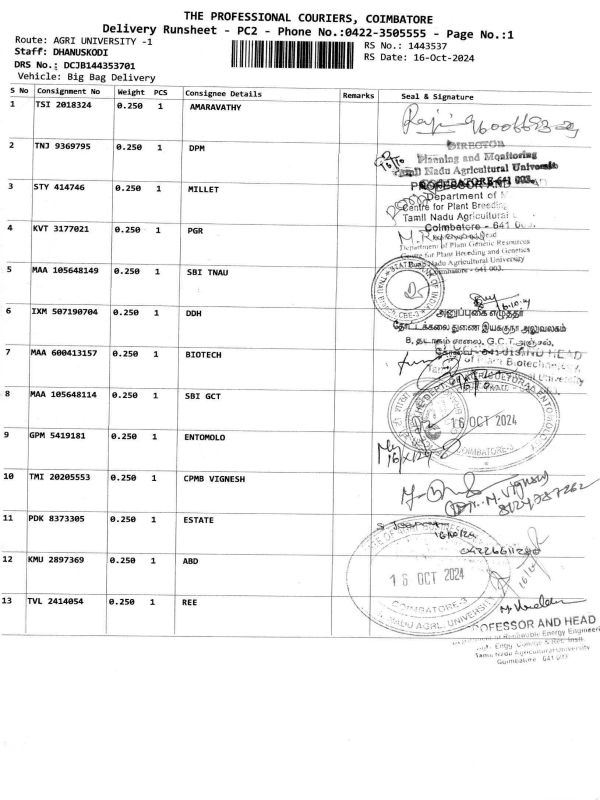 THE PROFESSIONAL COURIERS, COIMBATORE
Delivery Runsheet - PC2 - Phone No.:0422-3505555 - Page No.:1
Route: AGRI UNIVERSITY -1
RS No.: 1443537
Staff: DHANUSKODI
RS Date: 16-Oct-2024
DRS No.: DCJB144353701
Vehicle: Big Bag Delivery
S No Consignment No Weight PCS Consignee Details Remarks Seal & Signature
1 TSI 2018324 0.250 1 AMARAVATHY
2 TNJ 9369795 0.250 1 DPM
DIRECTOR
Planning and Monitoring
Tamil Nadu Agricultural University
COIMBATORE-641 003.
3 STY 414746 0.250 1 MILLET
PROFESSOR AND HEAD
Department of M
Centre for Plant Breeding
Tamil Nadu Agricultural U
Coimbatore - 641 0
4 KVT 3177021 0.250 1 PGR
Head
Department of Plant Genetic Resources
Centre for Plant Breeding and Genetics
Tamil Nadu Agricultural University
Coimbatore - 641 003.
5 MAA 105648149 0.250 1 SBI TNAU
16.10.24
6 IXM 507190704 0.250 1 DDH
தோட்டக்கலை துணை இயக்குநர் அலுவலகம்
8, தடாகம் சாலை, G.C.T. அஞ்சல்,
7 MAA 600413157 0.250 1 BIOTECH
AND HEAD
of Plant Biotechnology
8 MAA 105648114 0.250 1 SBI GCT
16 OCT 2024
COIMBATORE-3
9 GPM 5419181 0.250 1 ENTOMOLO
10 TMI 20205553 0.250 1 CPMB VIGNESH
M. Vignesh
8124787262
11 PDK 8373305 0.250 1 ESTATE
16/10/24
12 KMU 2897369 0.250 1 ABD
16 OCT 2024
COIMBATORE-3
NADU AGRL. UNIVERSITY
13 TVL 2414054 0.250 1 REE
PROFESSOR AND HEAD
of Renewable Energy Engineeri
Tamil Nadu Agricultural University
Coimbatore 641 003